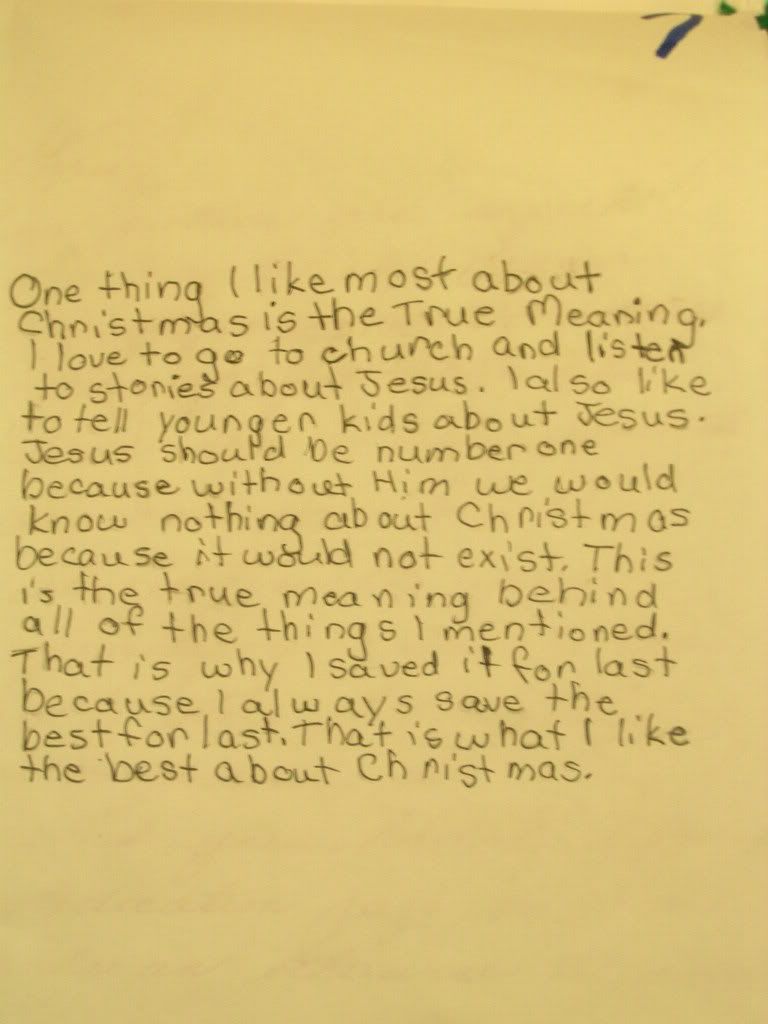 One thing I like most about
Christmas is the True Meaning.
I love to go to church and listen
to stories about Jesus. I also like
to tell younger kids about Jesus.
Jesus should be number one
because without Him we would
know nothing about Christmas
because it would not exist. This
is the true meaning behind
all of the things I mentioned.
That is why I saved it for last
because I always save the
best for last. That is what I like
the best about Christmas.